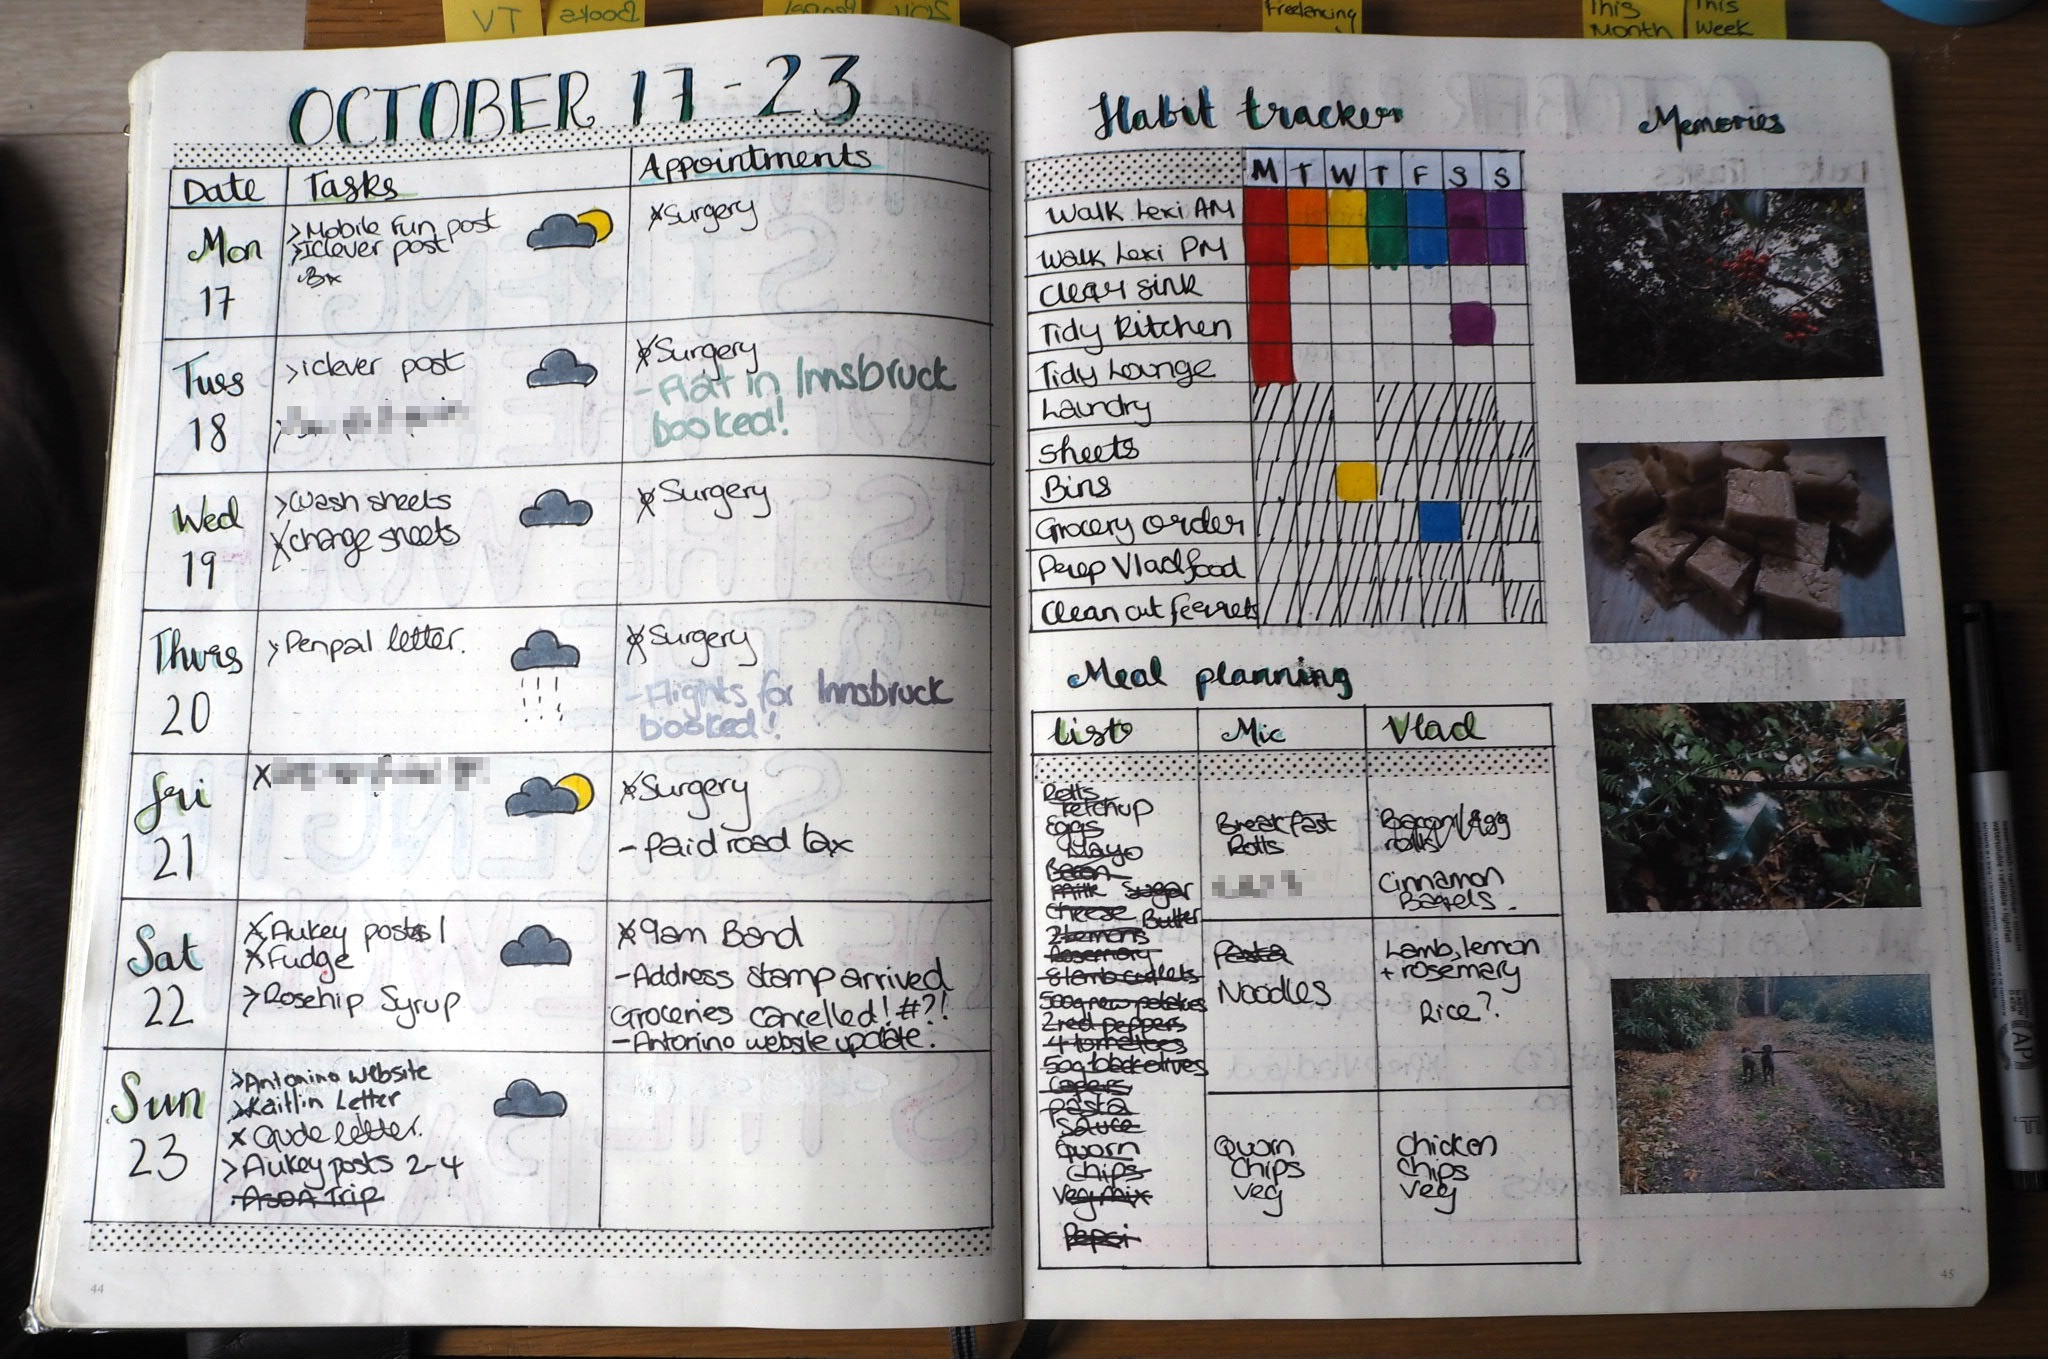 TV
Books
Freelancing
This
Month
This
Week
OCTOBER 17-23
Date
Tasks
Appointments
Mon
17
>Mobile Fun post
>Iclever post
XSurgery
Tues
18
>iclever post
XSurgery
-Flat in Innsbruck
booked!
Wed
19
>Wash sheets
Xchange sheets
XSurgery
Thurs
20
>Penpal letter.
XSurgery
-Flights for Innsbruck
booked!
Fri
21
X
XSurgery
-Paid road tax
Sat
22
XAukey posts 1
XFudge
>Rosehip Syrup
X9am Band
-Address stamp arrived
Groceries cancelled!#?!
-Antonino website update.
Sun
23
>Antonino website
>Kaitlin Letter
X letter.
>Aukey posts 2-4
ASDA Trip
44
Habit tracker
M T W T F S S
Walk Lexi AM
Walk Lexi PM
Clear sink
Tidy Kitchen
Tidy Lounge
Laundry
Sheets
Bins
Grocery order
Prep Vlad food
Clean out ferrets
Meal planning
List
Mic
Vlad
Rolls
Ketchup
Eggs
Mayo
Bacon
Milk Sugar
Cheese Butter
2 Lemons
Rosemary
8 lamb cutlets
500g new potatoes
2 red peppers
4 tomatoes
50g black olives
Capers
Pasta
Sauce
Quorn
Chips
Veg mix
Pepsi
Breakfast
Rolls
Bacon/Egg
rolls
Cinnamon
Bagels.
Pasta
Noodles
Lamb, lemon
+ rosemary
Rice?
Quorn
Chips
Veg
Chicken
Chips
Veg
Memories
45